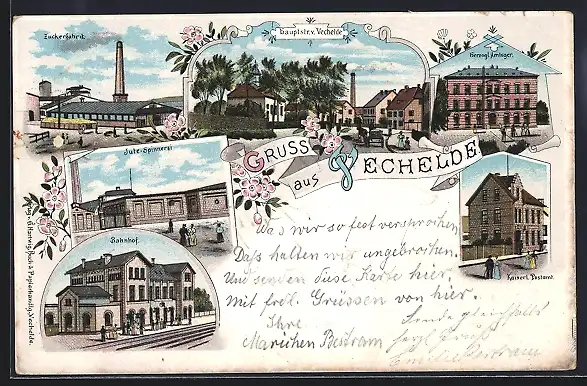 Zuckerfabrik.
Hauptstr. v. Vechelde
Herzogl. Amtsger.
Jute-Spinnerei
GRUSS
aus
VECHELDE
Bahnhof.
Kaiserl. Postamt.
Verl. v. G. Hartwig, Buch- & Papierhandlg. Vechelde.
Was wir so fest versprochen
Daß halten wir ungebrochen.
Und senden diese Karte hier
Mit frdl. Grüssen von hier.
Ihre
Mariechen Bertram
Sende gleichfalls
herzl. Gruß
Bertram